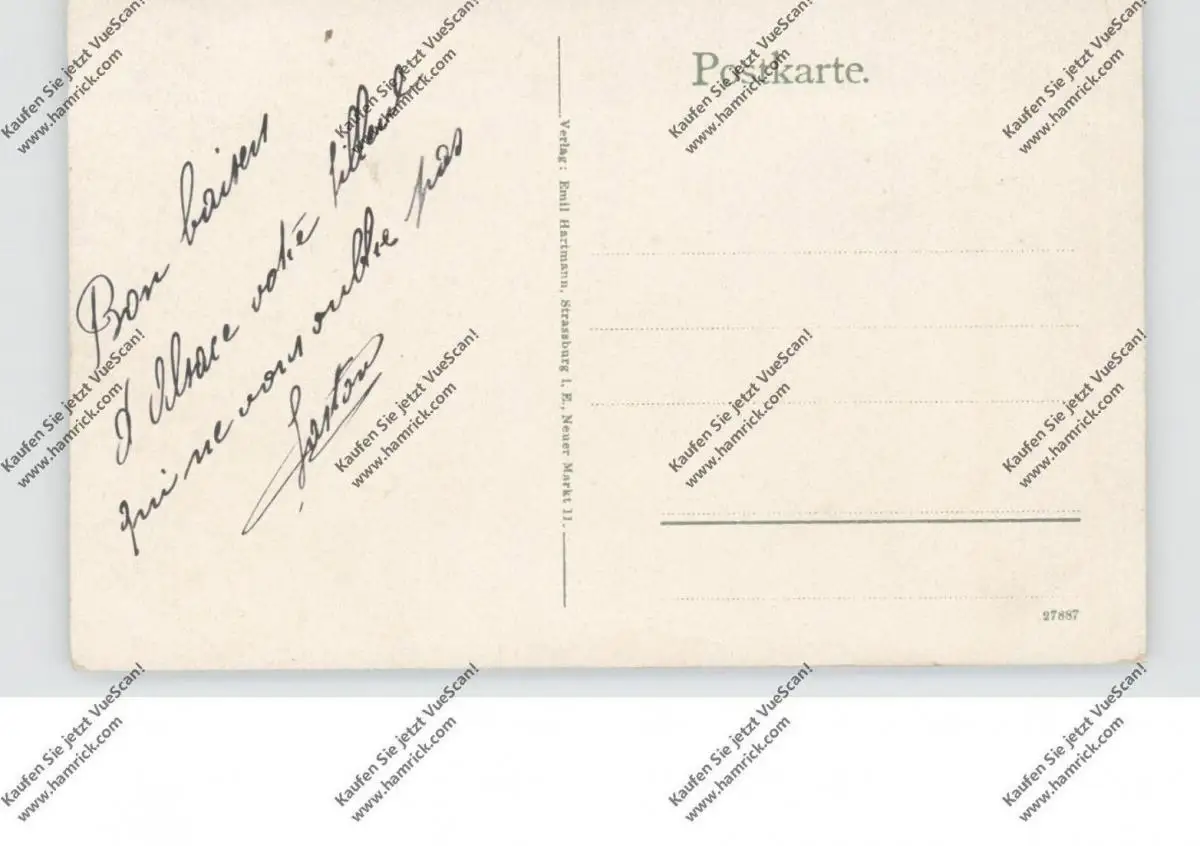 Bon baisers
d'Alsace votre filleul
qui ne vous oublie pas
Gaston
Postkarte.
Verlag: Emil Hartmann, Strassburg i. E., Neuer Markt 11.
27887
Kaufen Sie jetzt VueScan!
www.hamrick.com
Kaufen Sie jetzt VueScan!
www.hamrick.com
Kaufen Sie jetzt VueScan!
www.hamrick.com
Kaufen Sie jetzt VueScan!
www.hamrick.com
Kaufen Sie jetzt VueScan!
www.hamrick.com
Kaufen Sie jetzt VueScan!
www.hamrick.com
Kaufen Sie jetzt VueScan!
www.hamrick.com
Kaufen Sie jetzt VueScan!
www.hamrick.com
Kaufen Sie jetzt VueScan!
www.hamrick.com
Kaufen Sie jetzt VueScan!
www.hamrick.com
Kaufen Sie jetzt VueScan!
www.hamrick.com
Kaufen Sie jetzt VueScan!
www.hamrick.com